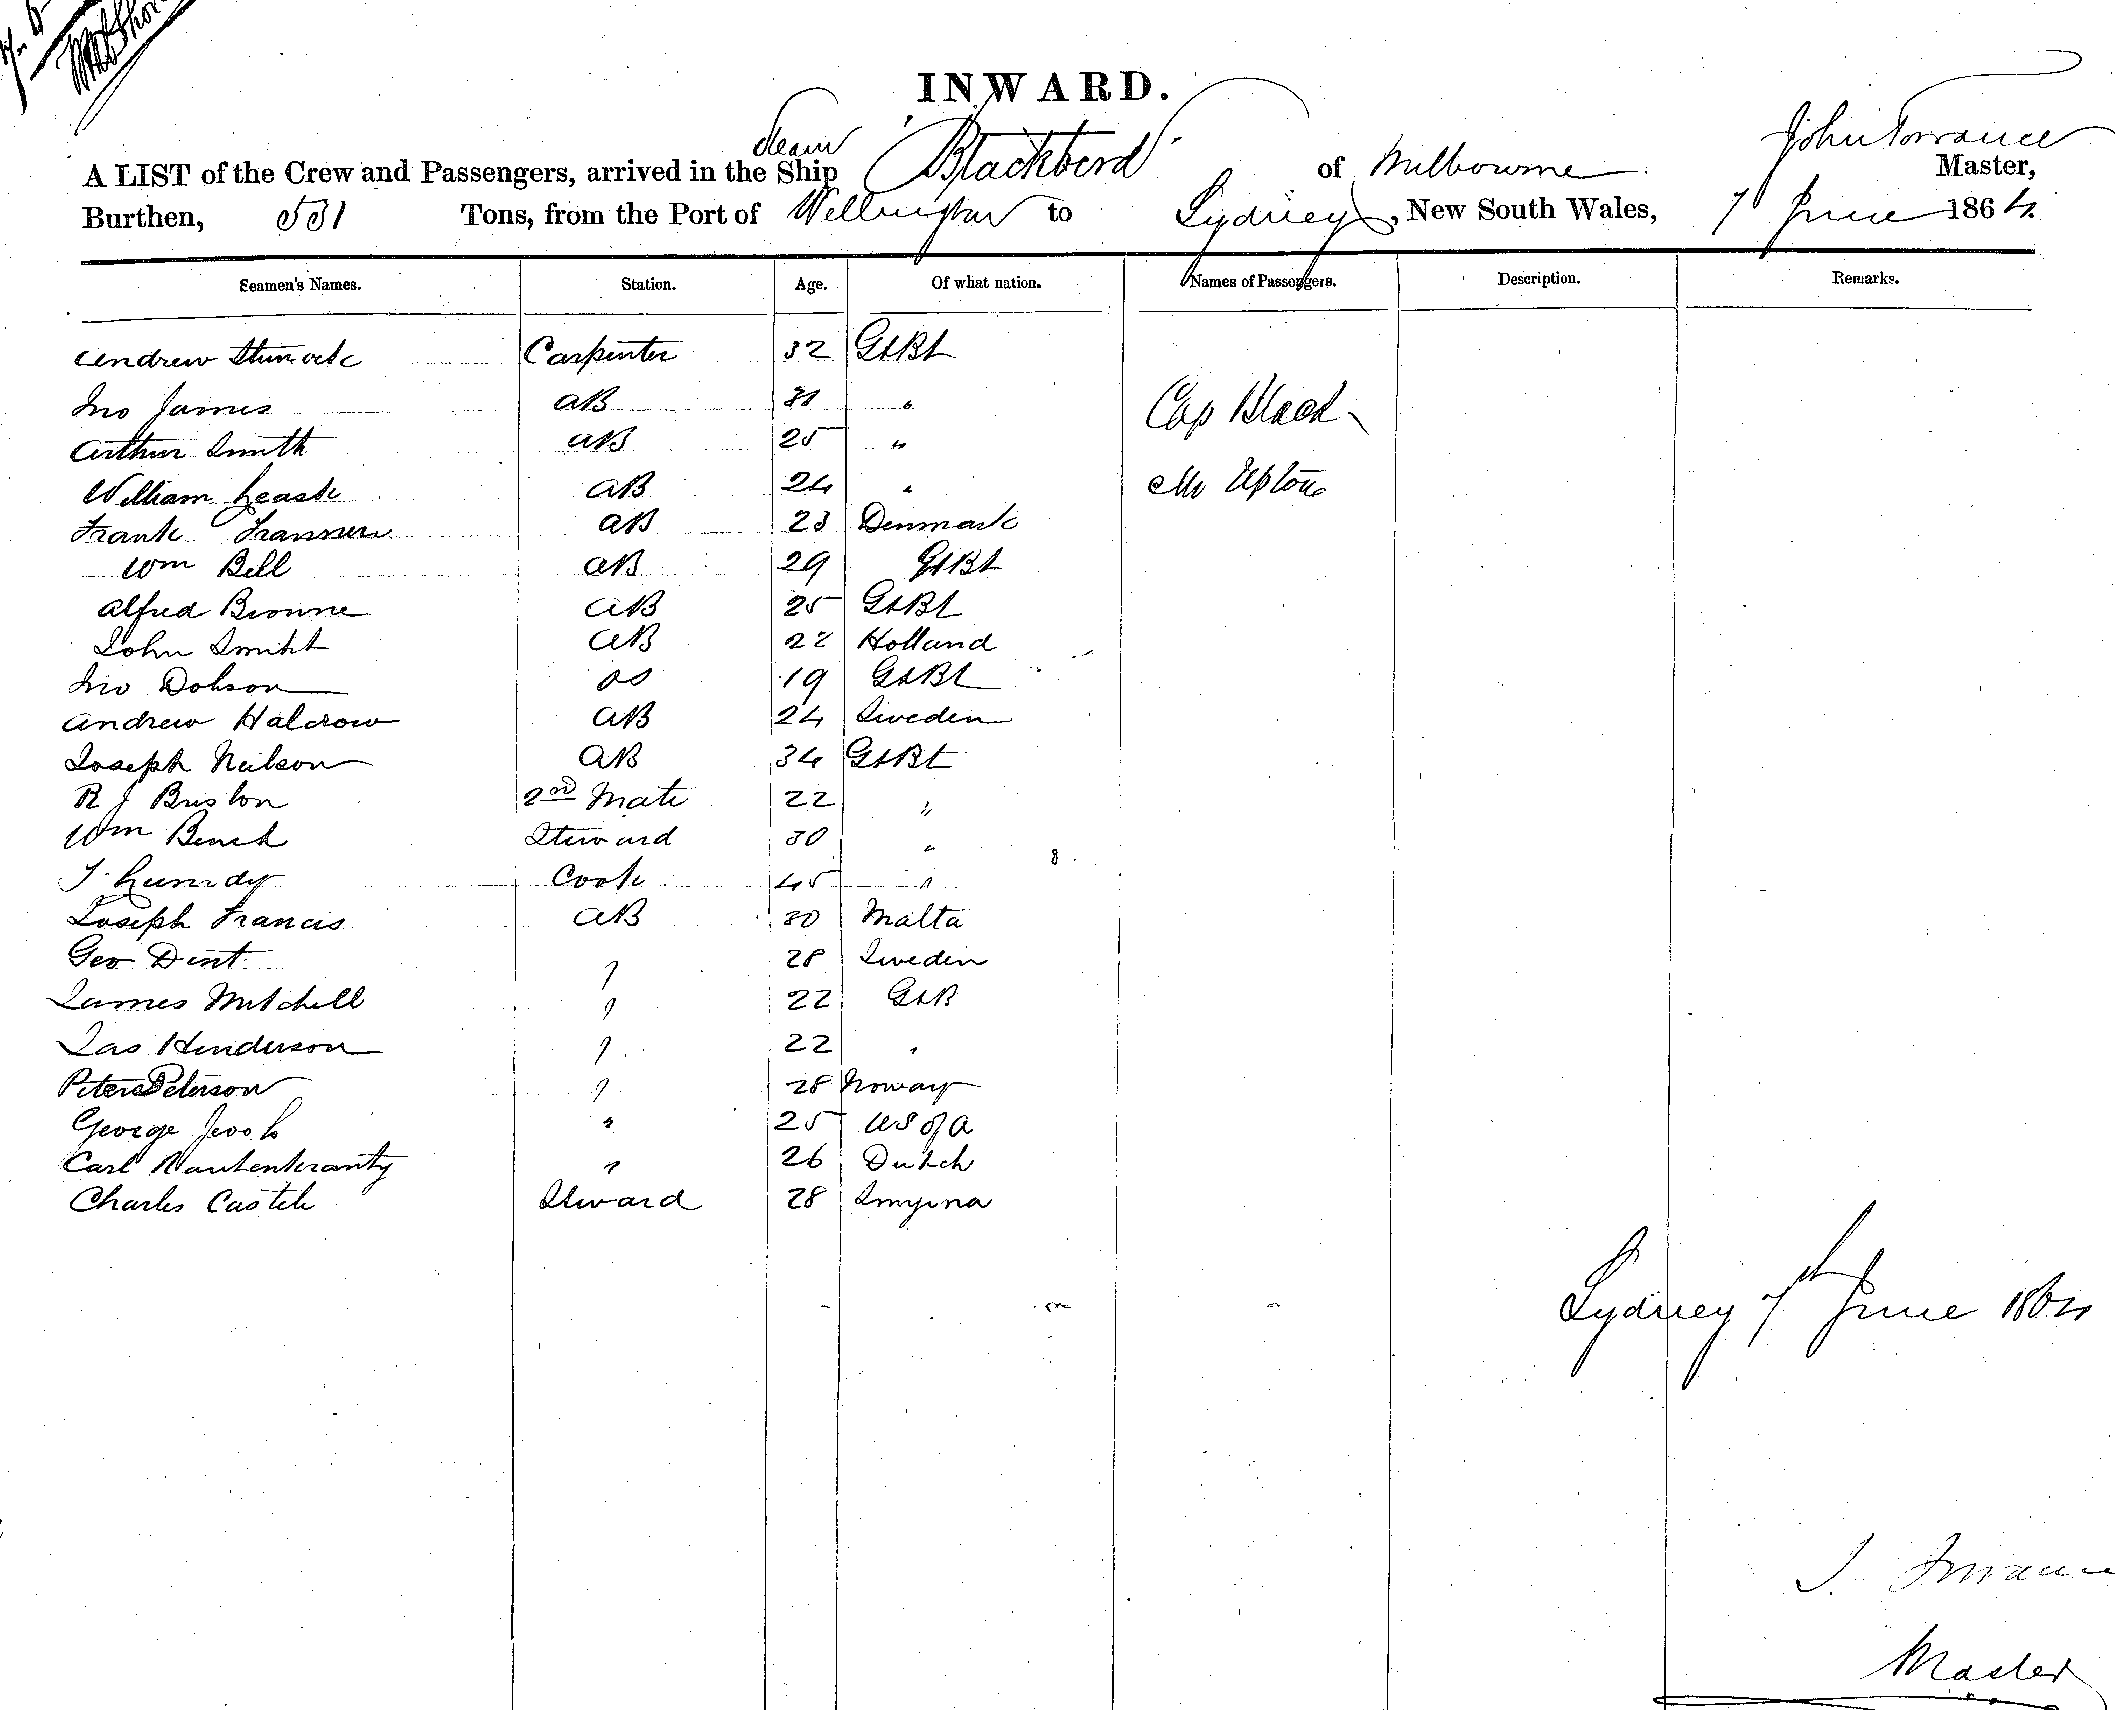 INWARD.
Steam
A LIST of the Crew and Passengers, arrived in the Ship "Blackberd" of Melbourne John Torrance Master,
Burthen, 531 Tons, from the Port of Wellington to Sydney, New South Wales, 7 June 1864.
Seamen's Names. Station. Age. Of what nation. Names of Passengers. Description. Remarks.
Andrew Carpenter 32 Gt Bt
Jno James AB 31 "
Cap Black
Arthur Smith AB 25 "
William Leask AB 24 "
Mr Upton
Frank AB 23 Denmark
Wm Bell AB 29 Gt Bt
Alfred Browne AB 25 Gt Bt
John Smitt AB 22 Holland
Jno Dobson OS 19 Gt Bt
Andrew Halcrow AB 24 Sweden
Joseph Neilson AB 34 Gt Bt
R J Buston 2nd Mate 22 "
Wm Steward 30 "
J. Cook 45 "
Joseph Francis AB 30 Malta
Geo Dent " 28 Sweden
James Mitchell " 22 Gt B
Jas Henderson " 22 "
Peter Peterson " 28 Norway
George " 25 US of A
Carl Rautenkrantz " 26 Dutch
Charles Castele Steward 28 Smyrna
Sydney 7th June 1864
J. Torrance
Master